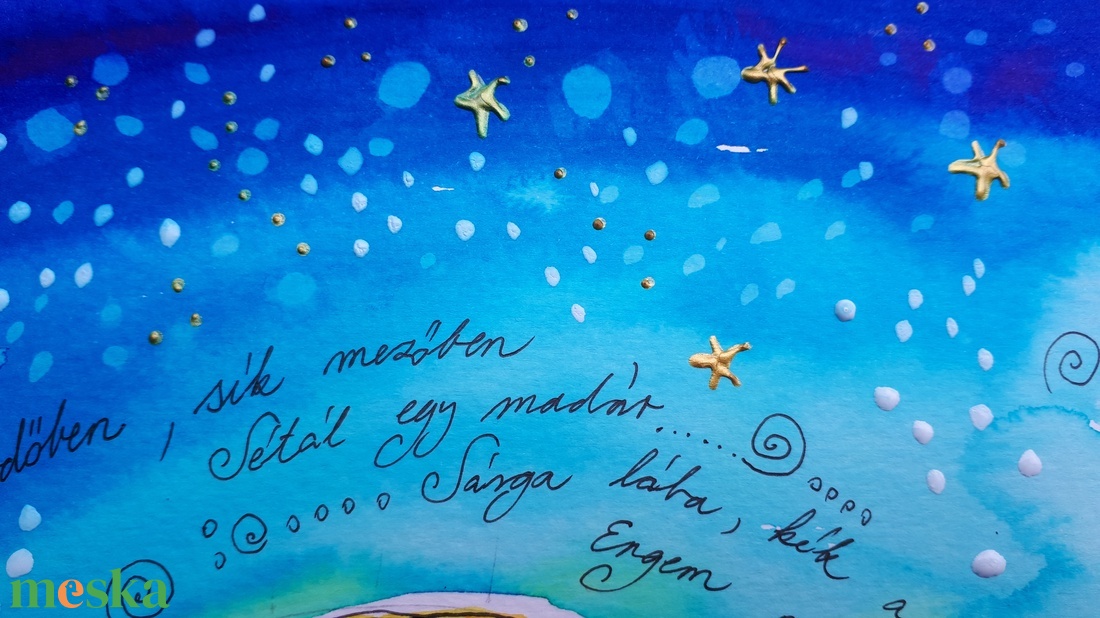 dőben, sík mezőben
Sétál egy madár......
Sárga lába, kék
Engem
a
meska